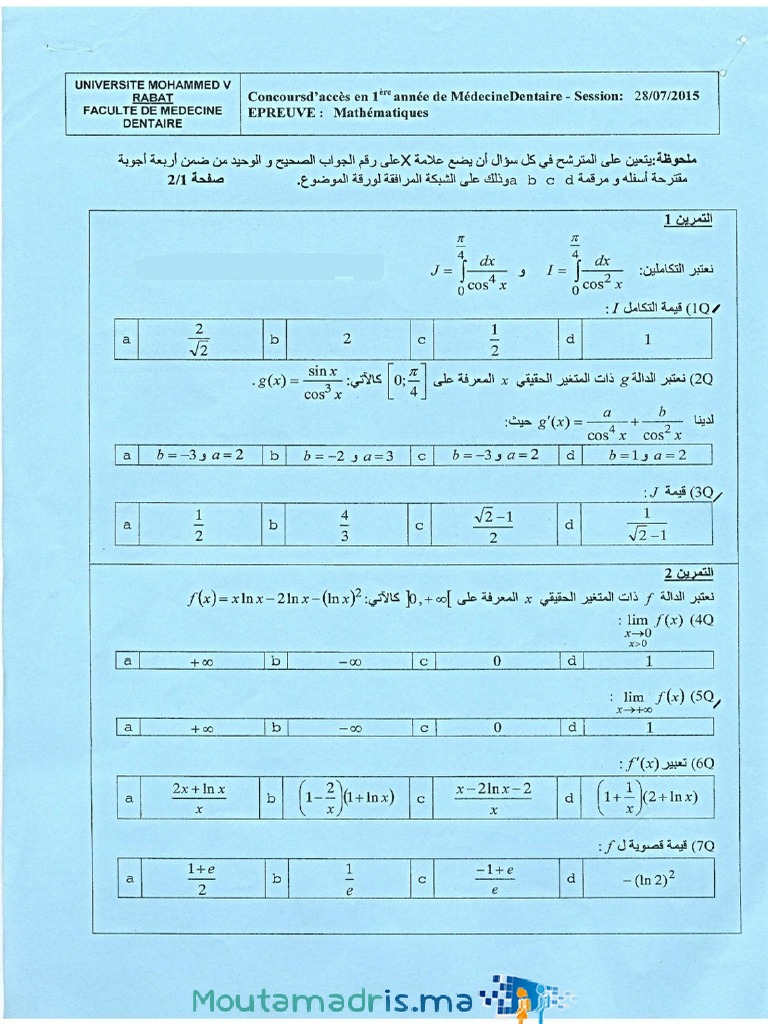 UNIVERSITE MOHAMMED V
RABAT
FACULTE DE MEDECINE
DENTAIRE
Concoursd'accès en 1ère année de MédecineDentaire - Session: 28/07/2015
EPREUVE : Mathématiques
ملحوظة:يتعين على المترشح في كل سؤال أن يضع علامة Xعلى رقم الجواب الصحيح و الوحيد من ضمن أربعة أجوبة
مقترحة أسفله و مرقمة a b c d وذلك على الشبكة المرافقة لورقة الموضوع. صفحة 2/1
التمرين 1
نعتبر التكاملين: I = ∫₀^(π/4) dx/cos² x و J = ∫₀^(π/4) dx/cos⁴ x
1Q) قيمة التكامل I :
a 2/√2 b 2 c 1/2 d 1
2Q) نعتبر الدالة g ذات المتغير الحقيقي x المعرفة على [0; π/4] كالآتي: g(x) = sin x/cos³ x .
لدينا g′(x) = a/cos⁴ x + b/cos² x حيث:
a b = −3 و a = 2 b b = −2 و a = 3 c b = −3 و a = 2 d b = 1 و a = 2
3Q) قيمة J :
a 1/2 b 4/3 c (√2 −1)/2 d 1/(√2 −1)
التمرين 2
نعتبر الدالة f ذات المتغير الحقيقي x المعرفة على ]0,+∞[ كالآتي: f(x) = x ln x − 2 ln x − (ln x)²
4Q) lim f(x) :
x→0
x>0
a +∞ b −∞ c 0 d 1
5Q) lim f(x) :
x→+∞
a +∞ b −∞ c 0 d 1
6Q) تعبير f′(x) :
a (2x + ln x)/x b (1 − 2/x)(1 + ln x) c (x − 2 ln x − 2)/x d (1 + 1/x)(2 + ln x)
7Q) قيمة قصوية ل f :
a (1+e)/2 b 1/e c (−1+e)/e d −(ln 2)²
Moutamadris.ma